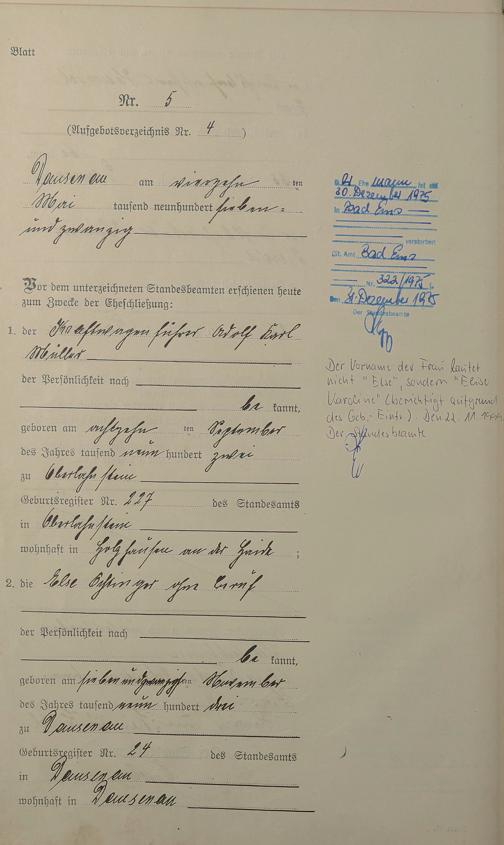 Blatt
Nr. 5
(Aufgebotsverzeichnis Nr. 4 )
Dausenau am vierzehn ten
Mai tausend neunhundert sieben=
und zwanzig
Vor dem unterzeichneten Standesbeamten erschienen heute
zum Zwecke der Eheschließung:
1. der Kraftwagenführer Adolf Karl
Müller
der Persönlichkeit nach
be kannt,
geboren am achtzehn ten September
des Jahres tausend neun hundert zwei
zu Oberlahnstein
Geburtsregister Nr. 227 des Standesamts
in Oberlahnstein
wohnhaft in Holzhausen an der Haide ;
2. die Else ohne Beruf
der Persönlichkeit nach
be kannt,
geboren am siebenundzwanzigsten November
des Jahres tausend neun hundert drei
zu Dausenau
Geburtsregister Nr. 24 des Standesamts
in Dausenau
wohnhaft in Dausenau
Ehemann ist am
30. Dezember 1975
in Bad Ems
verstorben
St. Amt Bad Ems
Nr. 322/1975
Den 31. Dezember 1975
Der Standesbeamte
Der Vorname der Frau lautet
nicht "Else", sondern "Elise
Karoline" (berichtigt aufgrund
des Geb.-Eintr.). Den 22. 11.
Der Standesbeamte